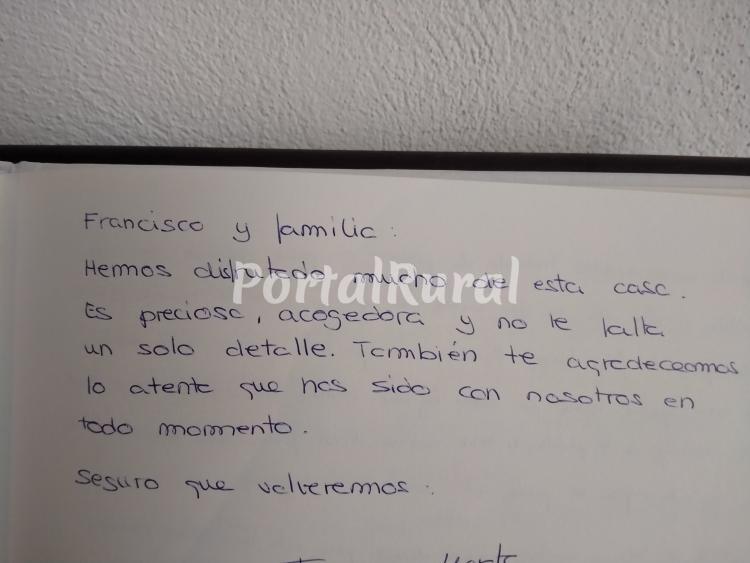 Francisco y familia:
Hemos disfrutado mucho de esta casa.
PortalRural
Es preciosa, acogedora y no le falta
un solo detalle. También te agradecemos
lo atenta que has sido con nosotros en
todo momento.
Seguro que volveremos.